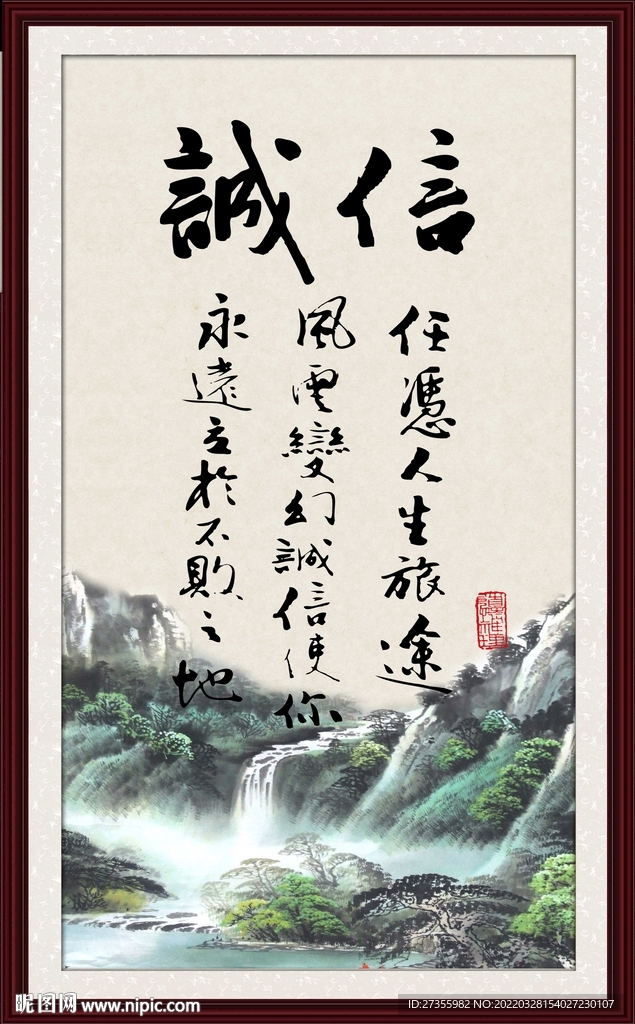 誠信
任憑人生旅途
風雲變幻誠信使你
永遠立於不敗之地
昵图网 www.nipic.com
ID:27355982 NO:20220328154027230107